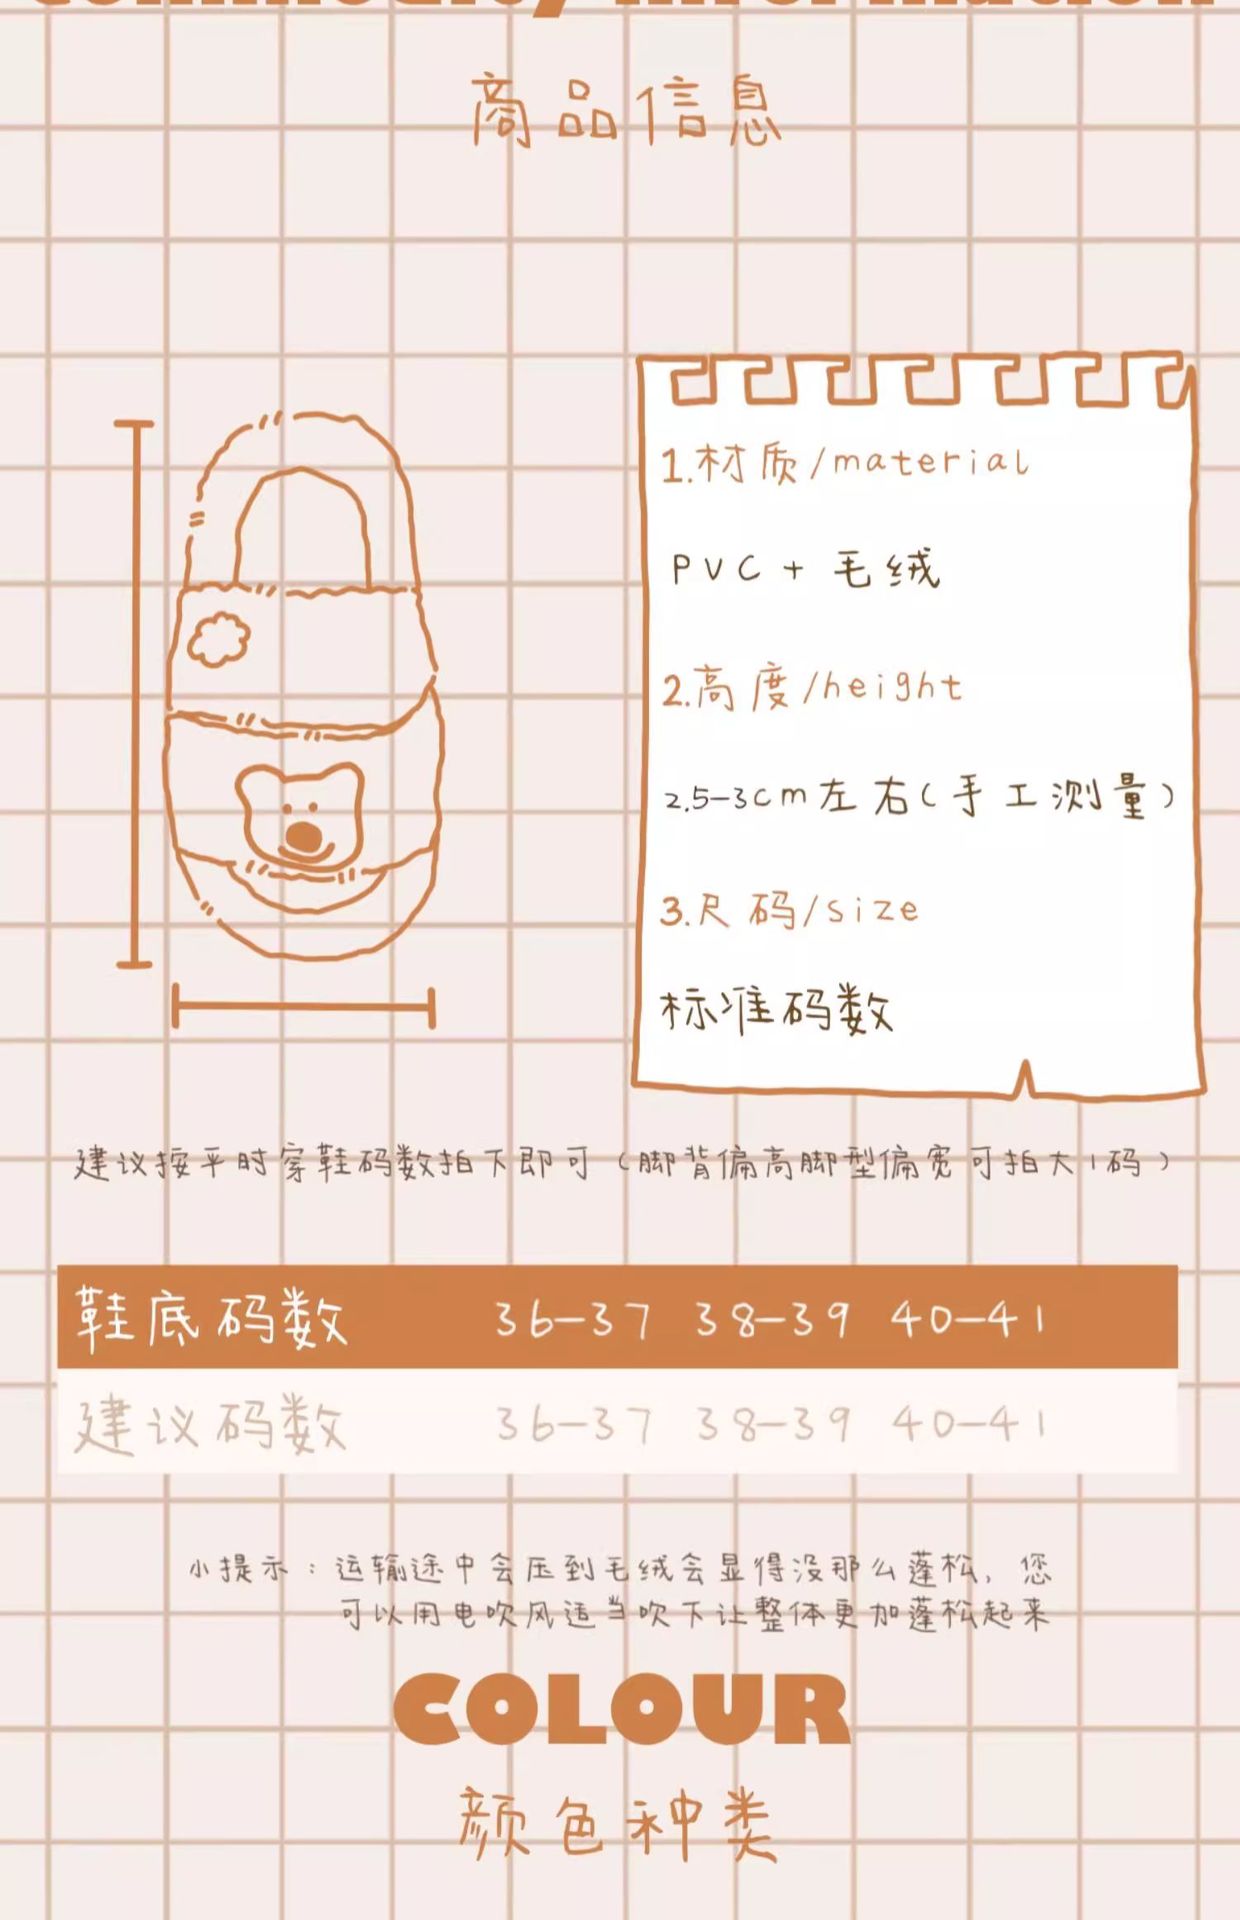 Commodity Information
商品信息
1.材质/material
PVC+毛绒
2.高度/height
2.5-3cm左右(手工测量)
3.尺码/size
标准码数
建议按平时穿鞋码数拍下即可(脚背偏高脚型偏宽可拍大1码)
鞋底码数 36-37 38-39 40-41
建议码数 36-37 38-39 40-41
小提示:运输途中会压到毛绒会显得没那么蓬松,您
可以用电吹风适当吹下让整体更加蓬松起来
COLOUR
颜色种类